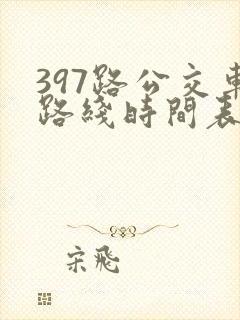 397路公交車
路綫時間表
宋飛